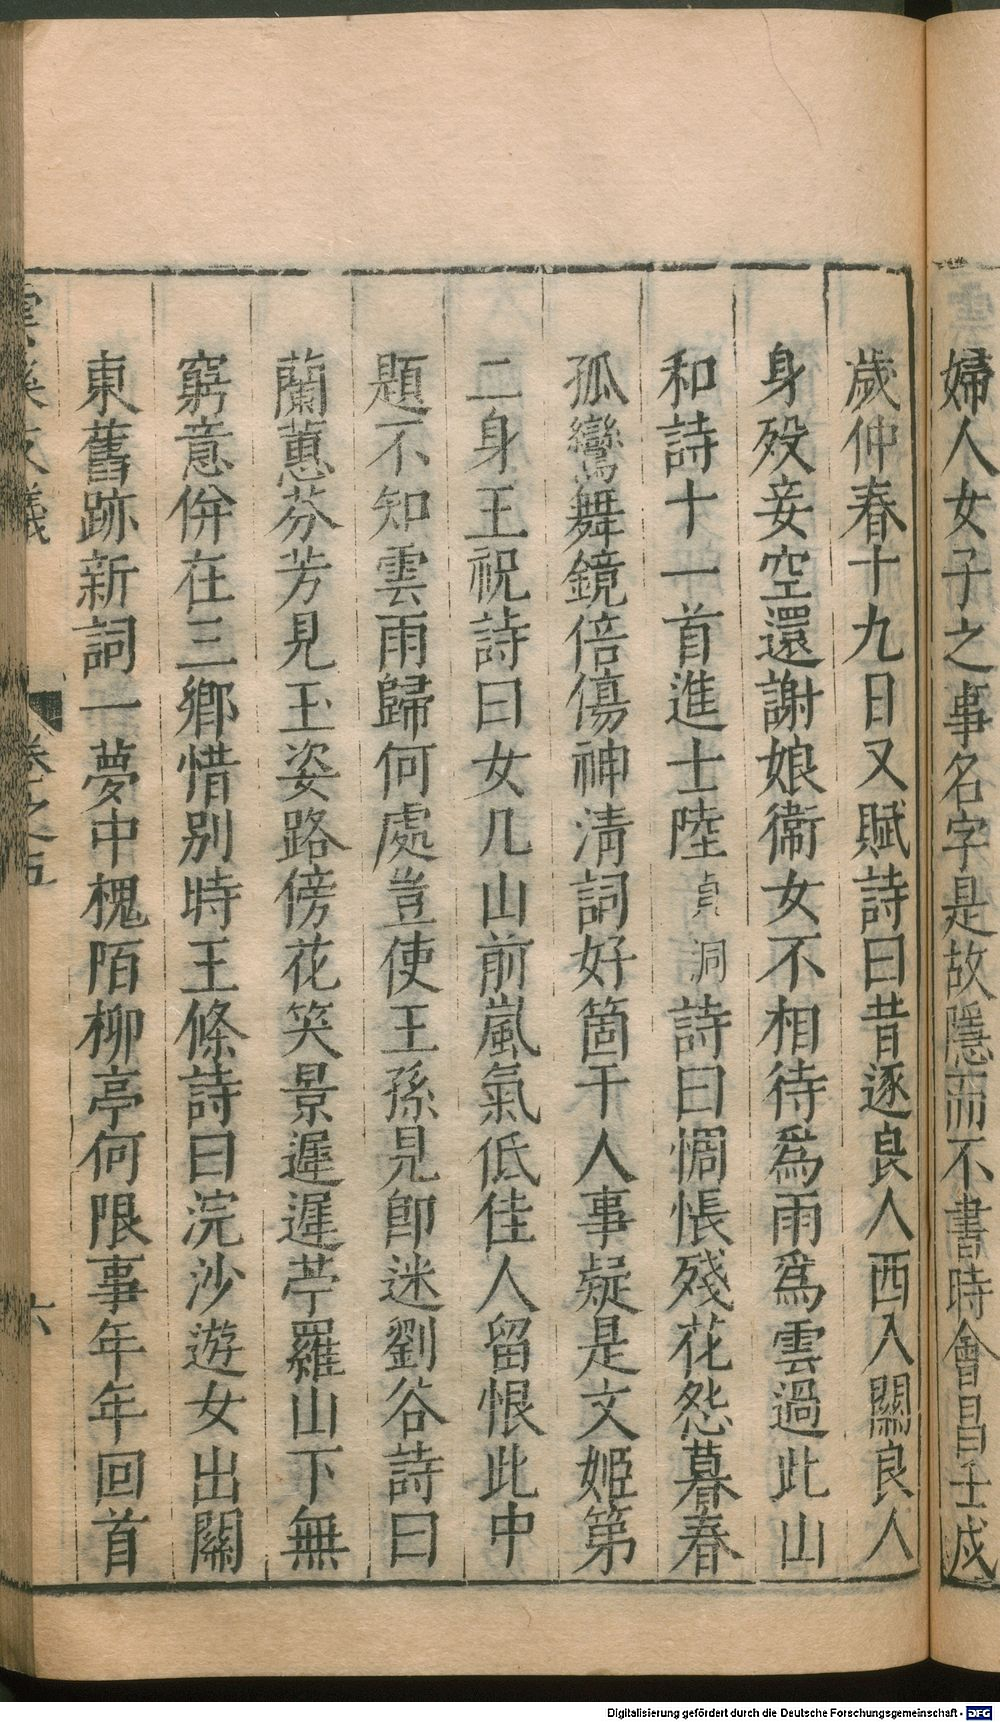 婦人女子之事名字是故隱而不書時會昌壬戌
歲仲春十九日又賦詩曰昔逐良人西入關良人
身歿妾空還謝娘衛女不相待爲雨爲雲過此山
和詩十一首進士陸貞洞詩曰惆悵殘花怨暮春
孤鸞舞鏡倍傷神清詞好箇干人事疑是文姬第
二身王祝詩曰女几山前嵐氣低佳人留恨此中
題不知雲雨歸何處豈使王孫見卽迷劉谷詩曰
蘭蕙芬芳見玉姿路傍花笑景遲遲苧羅山下無
窮意併在三鄉惜別時王條詩曰浣沙遊女出關
東舊跡新詞一夢中槐陌柳亭何限事年年回首
雲溪友議 卷之五 六
Digitalisierung gefördert durch die Deutsche Forschungsgemeinschaft - DFG